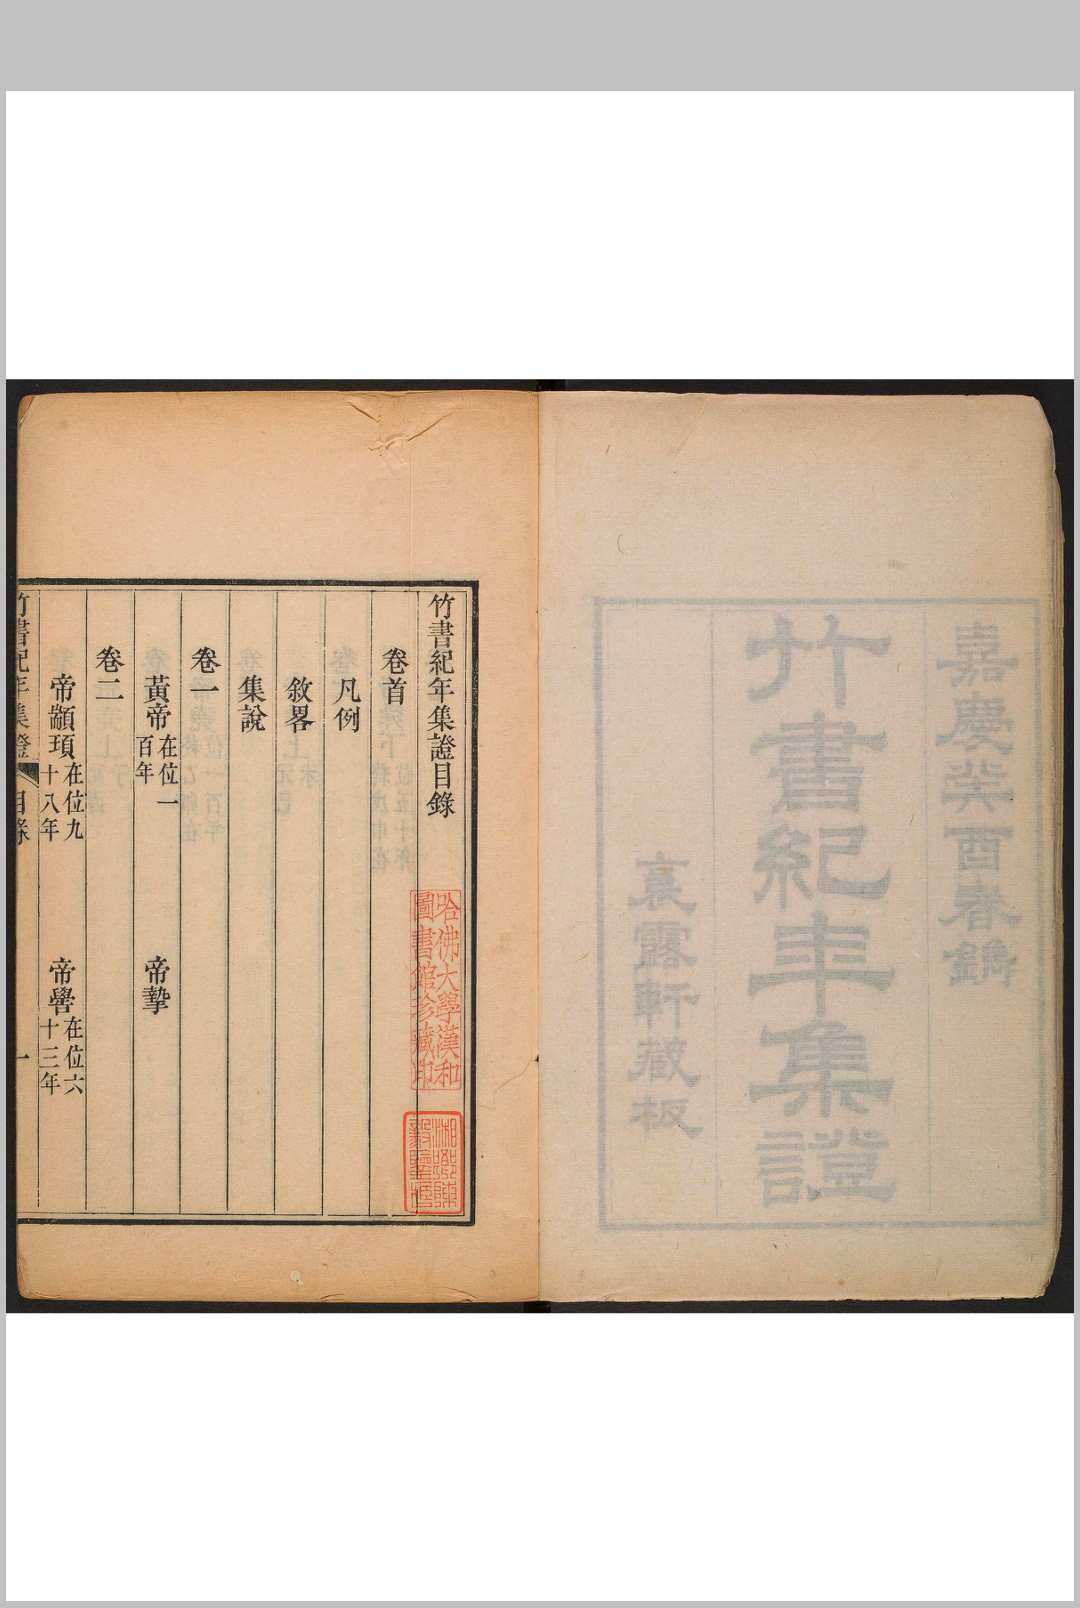 嘉慶癸酉春鐫
竹書紀年集證
裛露軒藏板
竹書紀年集證目錄
卷首
凡例
敘畧
集說
卷一
黃帝在位一百年
帝摯
卷二
帝顓頊在位九十八年
帝嚳在位六十三年
竹書紀年集證
目錄
一
哈佛大學漢和
圖書館珍藏印